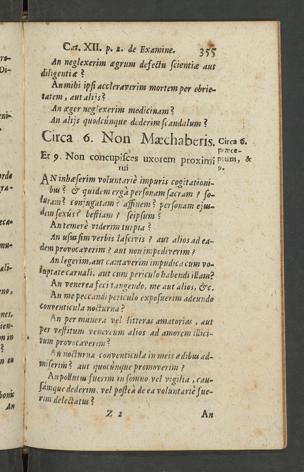 Cat. XII. p. 2. de Examine. 355
An neglexerim ægrum defectu scientiæ aut
diligentiæ?
An mihi ipsi acceleraverim mortem per ebrie-
tatem, aut alijs?
An æger neglexerim medicinam?
An alijs quodcùnque dederim scandalum?
Circa 6. Non Mæchaberis.
Circa 6.
Et 9. Non concupisces uxorem proximi
tui
præce-
ptum, &
9.
AN inhæserim voluntariè impuris cogitationi-
bus? & quidem ergà personam sacram? so-
lutam? conjugatam? affinem? personam ejus-
dem sexûs? bestiam? seipsum?
An temerè viderim turpia?
An usus sim verbis lascivis? aut alios ad ea-
dem provocaverim? aut non impediverim?
An legerim, aut cantaverim impudica cum vo-
luptate carnali, aut cum periculo habendi illam?
An venerea feci tangendo, me aut alios, &c.
An me peccandi periculo exposuerim adeundo
conventicula nocturna?
An per munera vel litteras amatorias, aut
per vestitum venereum alios ad amorem illici-
tum provocaverim?
An nocturna conventicula in meis ædibus ad-
miserim? aut quocùnque promoverim?
An pollutus fuerim in somno vel vigilia, cau-
sámque dederim, vel posteà de ea voluntariè fue-
rim delectatus?
Z 2 An